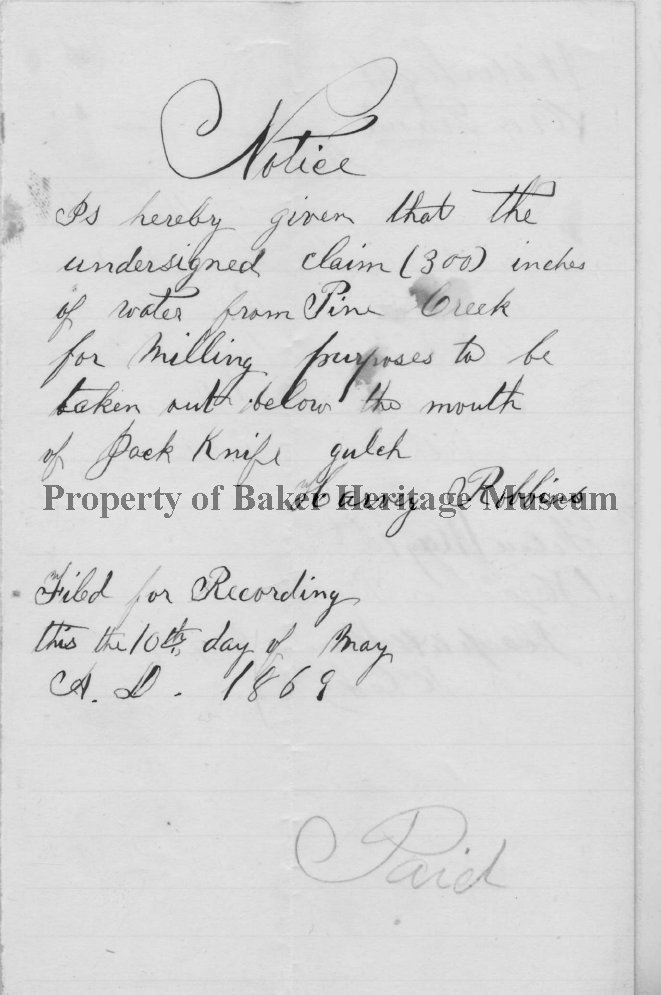 Notice
Is hereby given that the
undersigned claim (300) inches
of water from Pine Creek
for Milling purposes to be
taken out below the mouth
of Jack Knife gulch
Harry Robbins
Property of Baker Heritage Museum
Filed for Recording
this the 10th, day of May
A. D. 1869
Paid